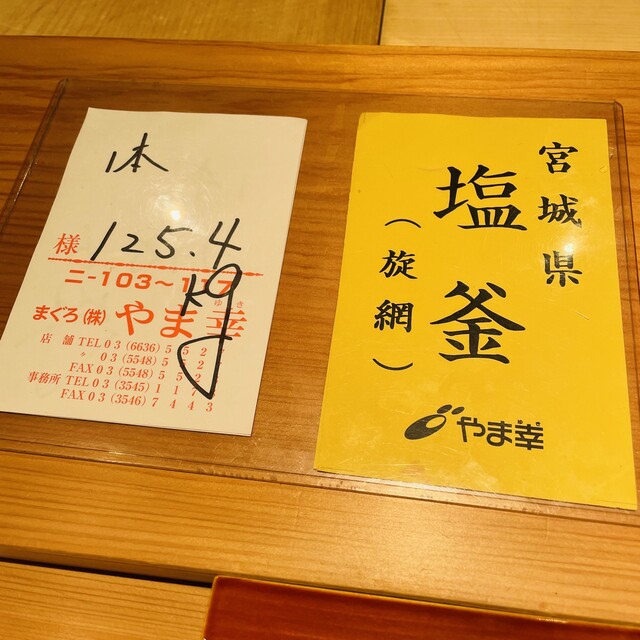 1本
125.4
kg
様
ニ-103~117
まぐろ(株) やま幸
ゆき
店 舗 TEL 03 (6636) 5 5 2
〃 03 (5548) 5 5 2
FAX 03 (5548) 5 5 2
事務所 TEL 03 (3545) 1 1 7
FAX 03 (3546) 7 4 4 3
宮城県
塩釜
(旋網)
やま幸